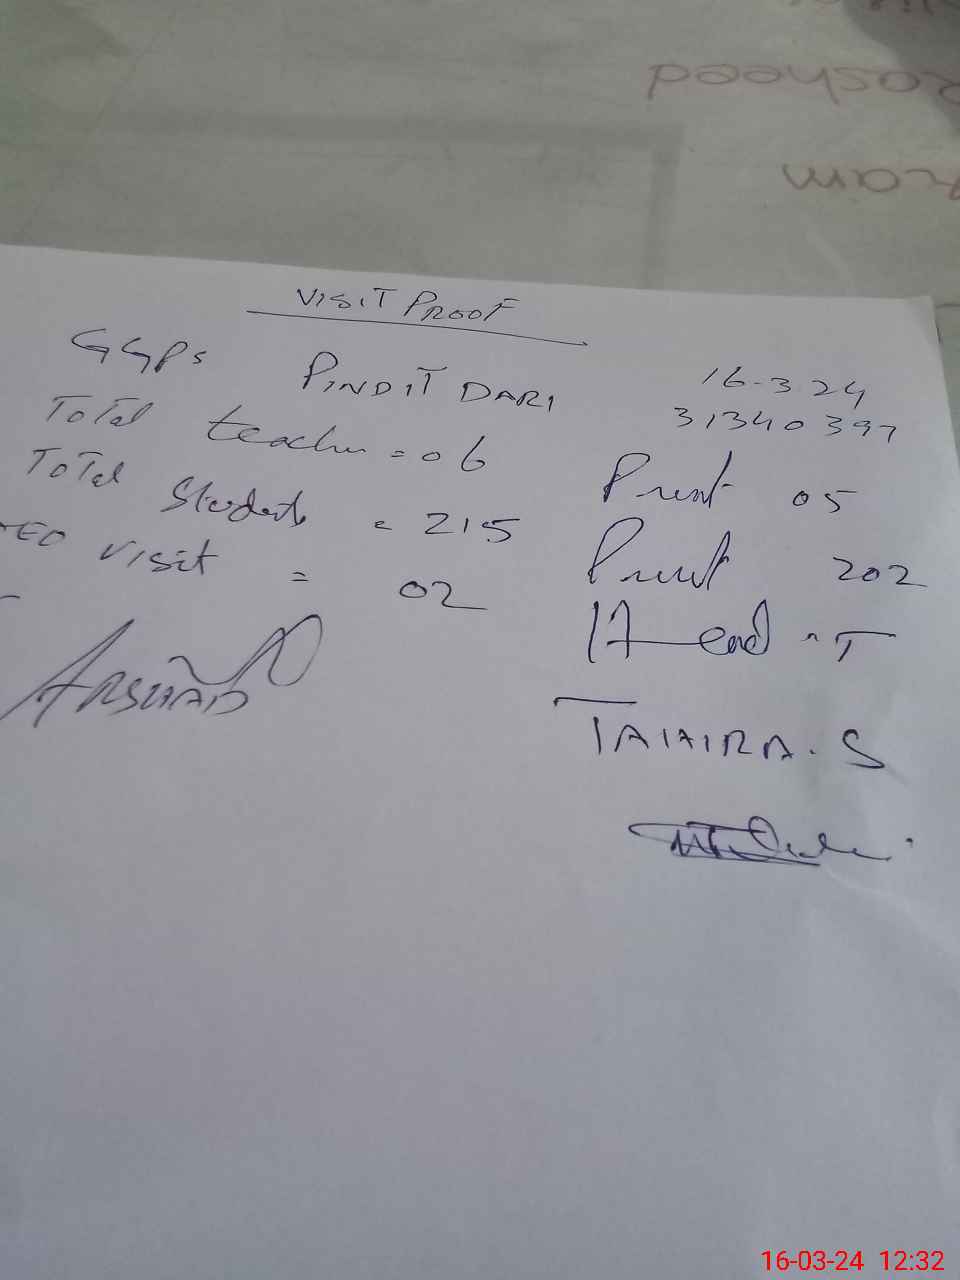 Rasheed
ram
VISIT PROOF
GGPS PINDIT DARI 16-3-24
31340397
Total teacher = 06 Prent 05
Total Students = 215 Prent 202
EO visit = 02 Head. T
ARSHAD
TAHIRA. S
16-03-24 12:32